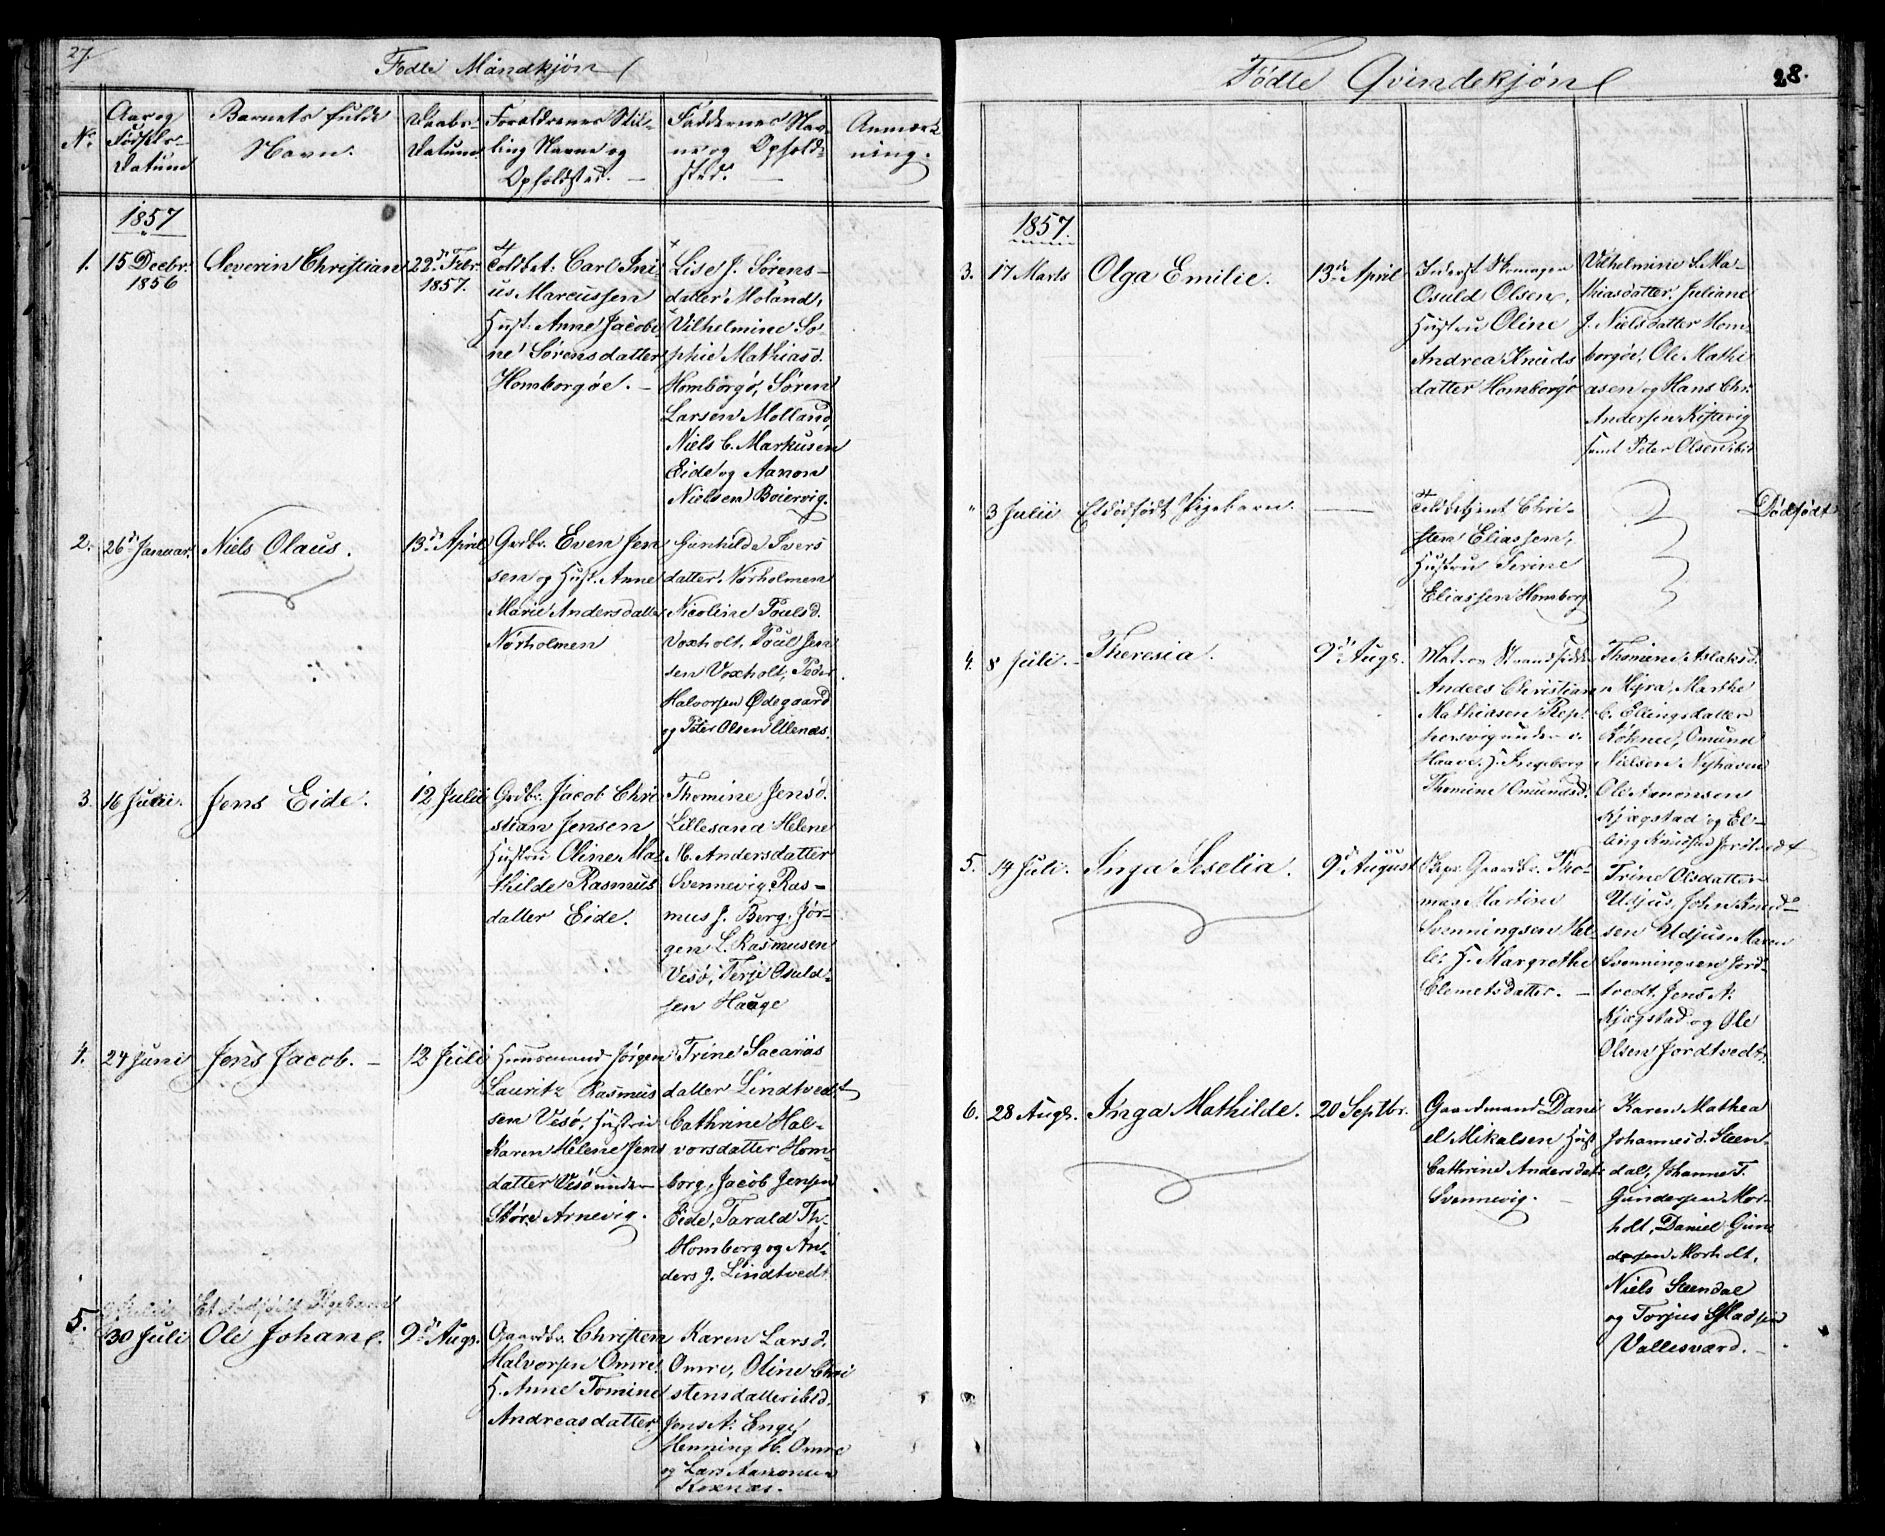 27.
Fødte Mandkjøn
No
Aar og
Fødsels-
Datum
Barnets fulde
Navn.
Daabs-
Datum
Forældrenes Stil-
ling Navne og
Opholdsted. —
Faddernes Nav-
ne og Ophold-
sted. —
Anmærk
ning.
1857
1. 15 Decbr.
1856
Severin Christian
22de Febr.
1857.
Toldbet: Carl Ini-
us Marcussen
Hust: Anne Jacobi-
ne Sørensdatter
Homborgøe. —
Lise J. Sørens-
datter Moland,
Vilhelmine So-
phie Mathiasd.
Homborgø, Søren
Larsen Molland,
Niels C. Markusen
Eide og Aanon
Nielsen Boiervig.
2. 26de Januar.
Niels Olaus.
13de April
Grdbr. Even Jen
sen og Hust. Anne
Marie Andersdatter
Nørholmen
Gunhilde Ivers
datter Nørholmen
Nicoline Poulsd.
Voxholt, Poul Jen
sen Voxholt, Peder
Halvorsen Ødegaard
og Peter Olsen Ulenæs.
3. 16 Juni.
Jens Eide.
12 Julii
Grdbr. Jacob Chri
stian Jensen
Hustru Oline Ma
thilde Rasmus
datter Eide.
Thomine Jensd.
Lillesand Helene
M. Andersdatter
Svennevig Ras-
mus J. Berg, Jør-
gen L. Rasmusen
Vesø, Terje Osuld-
sen Hauge
4. 24 Juni
Jens Jacob. —
12 Juli
Huusmand Jørgen
Lauritz Rasmus
sen Vesø, Hustru
Karen Helene Jens
datter Vesø under
Store Arnevig.
Trine Sacarias
datter Lindtvedt
Cathrine Hal-
vorsdatter Hom-
borg, Jacob Jensen
Eide, Tarald Th-
Homborg og An-
ders G. Lindtvedt
Et dødfødt Pigebarn
5. 30 Juli
Ole Johan.
9de Augs.
Gaardbr. Christen
Halvorsen Omre
H. Anne Tomine
Andreasdatter
Karen Larsd.
Omre, Oline Chri
stensdatter ibid.
Jens A. Enge
Henning H. Omre
og Lars Aanonsen
Koxnæs.
28.
Fødte Qvindekjøn
1857.
3. 17 Marts
Olga Emilie.
13de April
Inderst Skomager
Osuld Olsen,
Hustru Oline
Andrea Knuds
datter Homborgø
Vilhelmine S. Ma-
thiasdatter, Juliane
J. Nielsdatter Hom-
borgøe, Ole Mathi
asen og Hans Chr.
Andersen Kjstvig
samt Peter Olsen ibid
" 3 Julii
Et dødfødt Pigebarn.
Toldbetjent Chri-
sten Eliassen,
Hustru Serine
Eliassen Homborg
Dødfødt
4. 8 Juli. -
Theresia.
9de Augs.
Mat. og Strandsidder
Andees Christian
Mathiasen Rep-
persvig under
Haave, H. Ingeborg
Thomine Omundsd.
Thomine Aslaksd.
Mjra, Marthe
C. Ellingsdatter
Omund
Nielsen Nyhaven
Ole Aanonsen
Kjægstad og El-
ling Knudsen Jortvedt
5. 14 Juli.
Inga Iselia.
9de August
Gaardbr. Tho-
mas Martin
Svenningsen
H. Margrethe
Clemetsdatter. —
Trine Olsdatter
Udjus, John Knud-
sen Udjus, Maren
Svenningsen Jord-
tvedt, Jens A.
Kjægstad og Ole
Olsen Jordtvedt.
6. 28 Augs.
Inga Mathilde.
20 Septbr.
Gaardmand Dani
el Mikalsen Hust
Cathrine Andersdatt
Svennevig. —
Karen Mathea
Johannesd. Steen-
dal, Johanne T.
Gundersen Mor-
holt, Daniel Gun
dersen Morholt,
Niels Steendal
og Torjus
Vallesværd. —